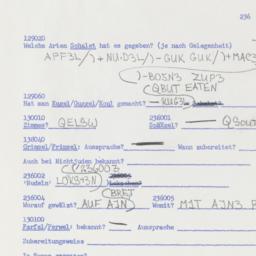 236
129020
Welche Arten Schalet hat es gegeben? (je nach Gelegenheit)
APF3L/)+NU:D3L/)-GUK GUK/)+MAC3
)-BOJN3 ZUP3
(QBUT EATEN
129060
Hat man Kugel/Guggel/Koul gemacht? -KUG3L
130010 236001
Zimmes? QELSW Soläizel? — QSOU
138040
Grimsel/Frimsel: Aussprache? Wann zubereitet?
Auch bei Nichtjuden bekannt?
(P236003
236002
'Nudeln' LOKS+3N)
(BREJ
236004 236005
Worauf gewälzt? AUF AJN) Womit? MIT AJN3
130100
Farfel/Ferwel: bekannt? — Aussprache
Zubereitungsweise